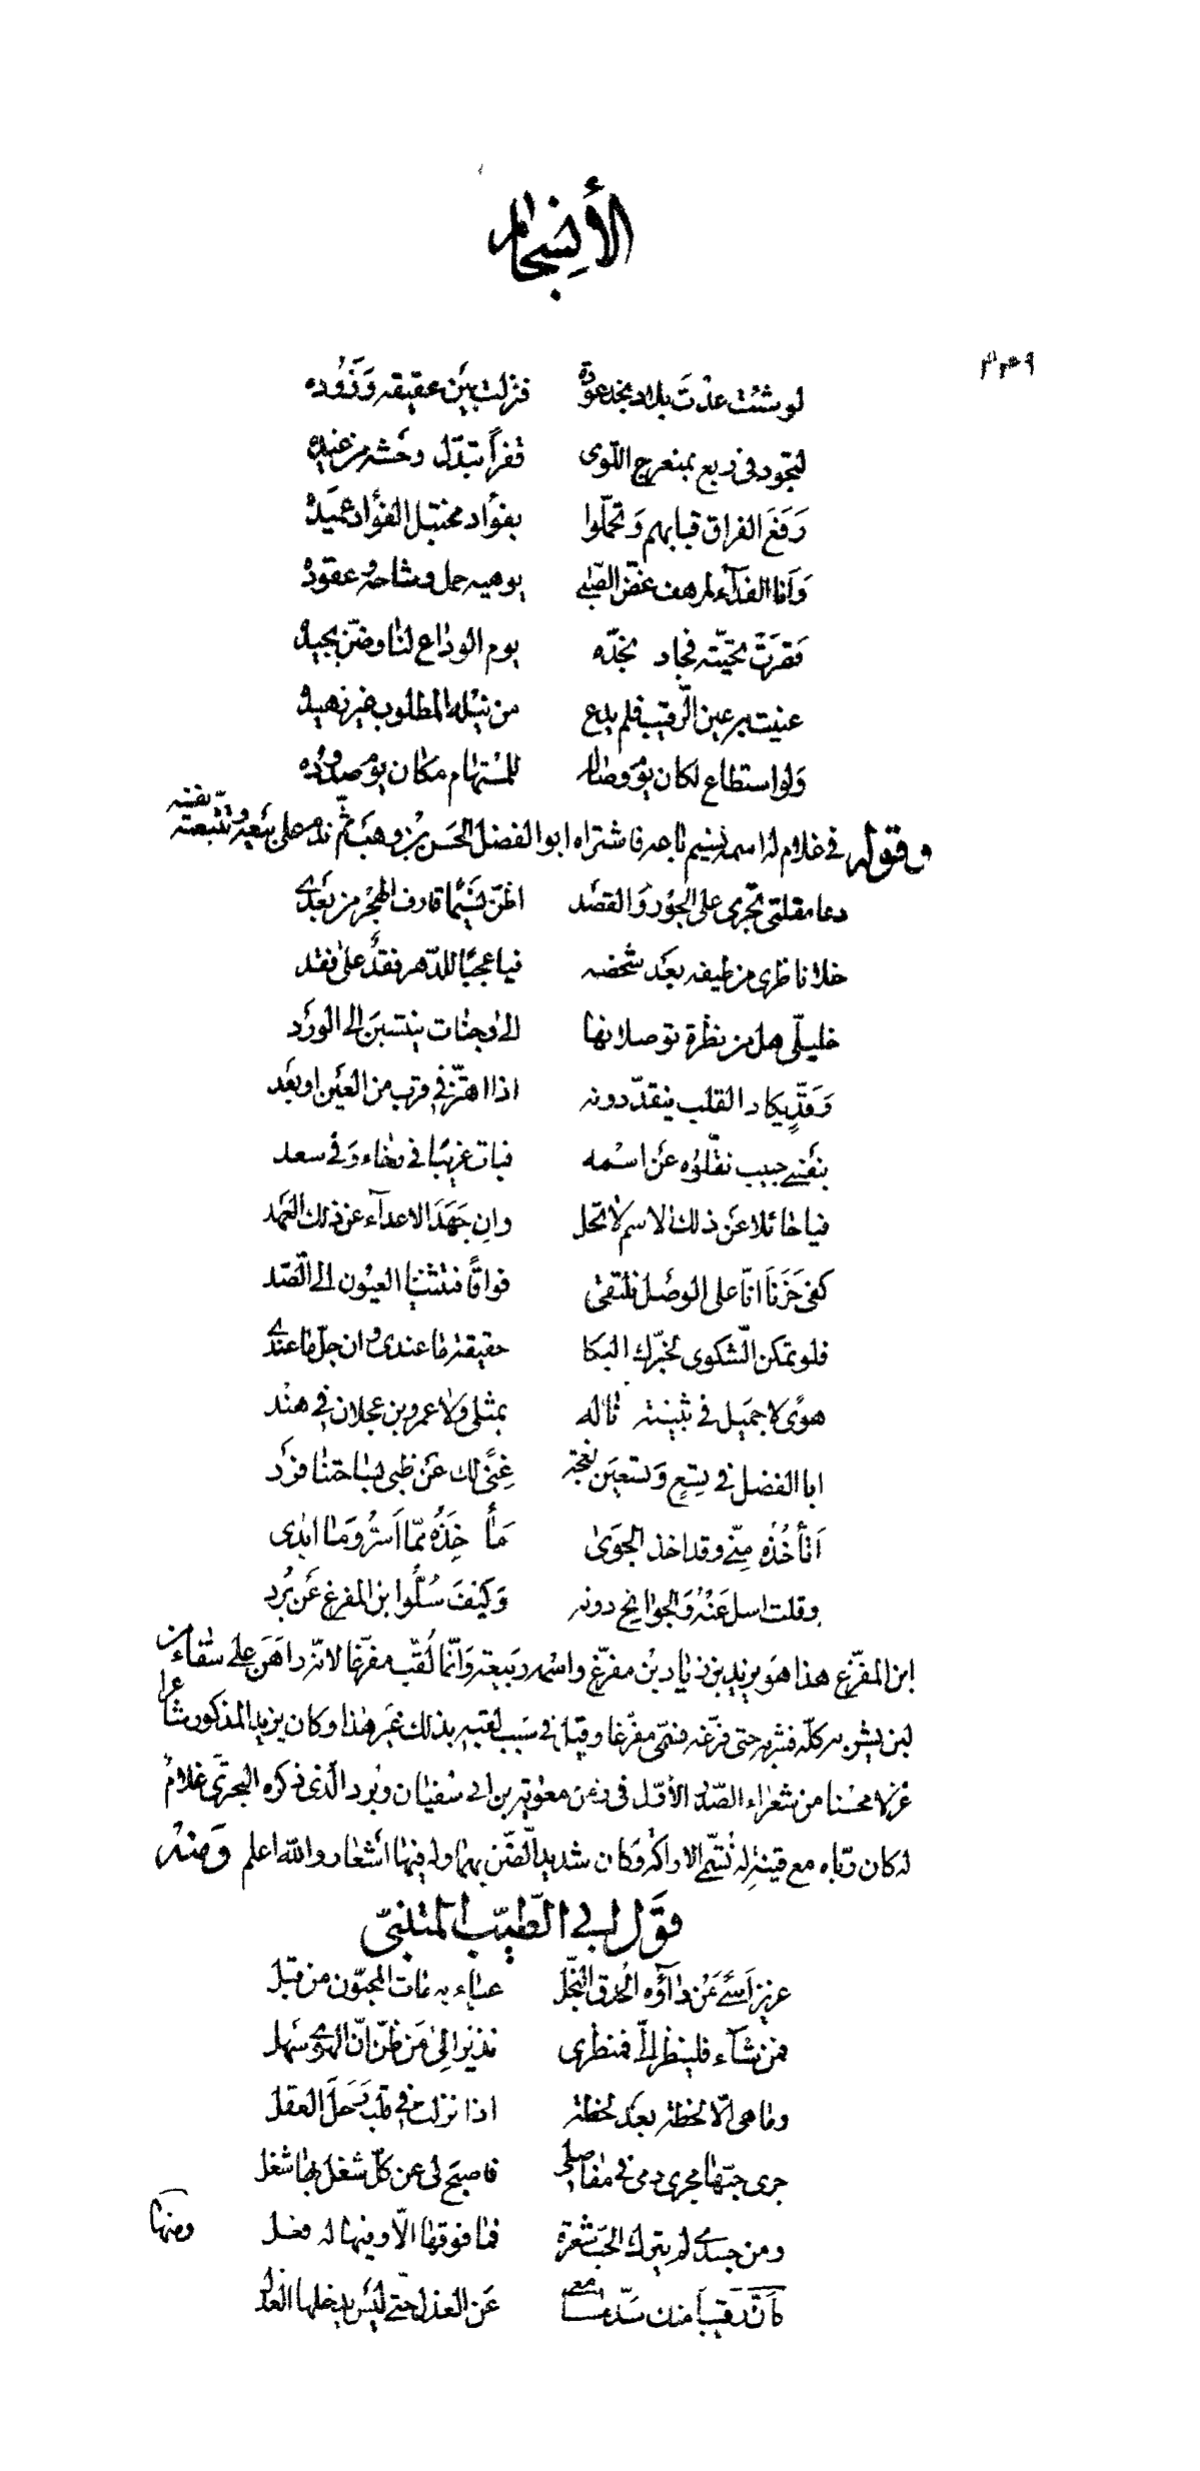 الأنسجام
٣٣٩
لو شئت عدت بلاد نجد عودة فنزلت بين عقيقه وزروده
لتجود في ربع بمنعرج اللوى قفراً تبدّل وحشه من غيده
رَفَعَ الفراق قبابهم وَتحمّلوا بفؤاد مختبل الفؤاد عميده
وَانا الفدآء لمرهف غضّ الصّبى يوهيه حمل وشاحه وعقوده
قصرت تحيّته فجاد بخدّه يوم الوداع لنا وضنّ بجيده
عنيت به عين الرّقيب فلم يدع من نيله المطلوب غير زهيده
وَلو استطاع لكان يوم وصاله للمستهام مكان يوم صدوده
وقوله في غلام له اسمه نسيم باعه فاشتراه ابو الفضل الحسن بن وهب ثمّ ندم على بيعه وتتبعته نفسه
دعا مقلتي تجرى على الجور وَالقصد اظنّ نسيما قارف الهجر من بعدي
خلا ناظرى من طيفه بعد شخصه فيا عجبا للدّهر فقدٌ على فقد
خليلّى هل من نظرة توصلانها الى وجنات ينتسبن الى الورد
وَقدٍّ يكاد القلب ينقدّ دونه اذا اهتزّ في قرب من العين او بعد
بنفسي حبيب نقّلوه عن اسمه فبات غريبا في رخاء وَفي سعد
فيا حائلا عن ذلك الاسم لا تحل وان جَهَدَ الاعدآء عن ذلك العهد
كفى حَزَنا انّا على الوصل نلتقى فواقاً فتثنينا العيون الى الصّد
فلو تمكن الشّكوى لخبّرك البكا حقيقة ما عندى وان جلّ ما عندي
هوًى لا جميل في بثينة ناله بمثلى ولا عمرو بن عجلان في هند
ابا الفضل في تسع وَتسعين نعجة غِنًى لك عن ظبى بساحتنا فرد
اَتأخُذُه منّي وقد اخذ الجوى مَأ خِذَهُ ممّا اَسرّ وَما ابدى
وقلت اسل عَنْه وَالجوانح دونه وَكيف سُلُّوا بن المفرغ عن برد
ابن المفرّغ هذا هو يزيد بن زياد بن مفرّغ واسمه ربيعة وَانّما لُقّب مفرّغا لانّه راهن على سقاء من
لبن يشربه كلّه فشربه حتى فرّغه فسمّى مفرّغا وقيل في سبب لقبه بذلك غير هذا وكان يزيد المذكور شاعرا
غزلا محسنا من شعراء الصّدر الأوّل في زمن معوية بن ابي سفيان وبرد الّذى ذكره البحترى غلام
له كان ربّاه مع قينة له تسمّى الاراكة وَكان شديد الضّن بهما وله فيها اشعار والله اعلم ومنه
قول ابي الطّيّب المتنبّى
عزيز اسىً مَنْ دآؤه الحدق النّجل عيآء به مات المحبّون من قبل
فمن شآء فلينظر الىّ فمنظرى نذير الى مَن ظنّ انّ الهوى سهل
وما هي الّا لحظة بعد لحظة اذا نزلت في قلبه رَحَلَ العقل
جرى حبّها مجرى دمى في مفاصلي فاصبح لى عن كلّ شغل بها شغل
ومن جسدي لم يترك الحبّ شعرة فما فوقها الّا وفيها له فعل
ومنها
كأنّ رقيبا منك سدّ مسامعى عن العذل حتى ليس يدخلها العذل